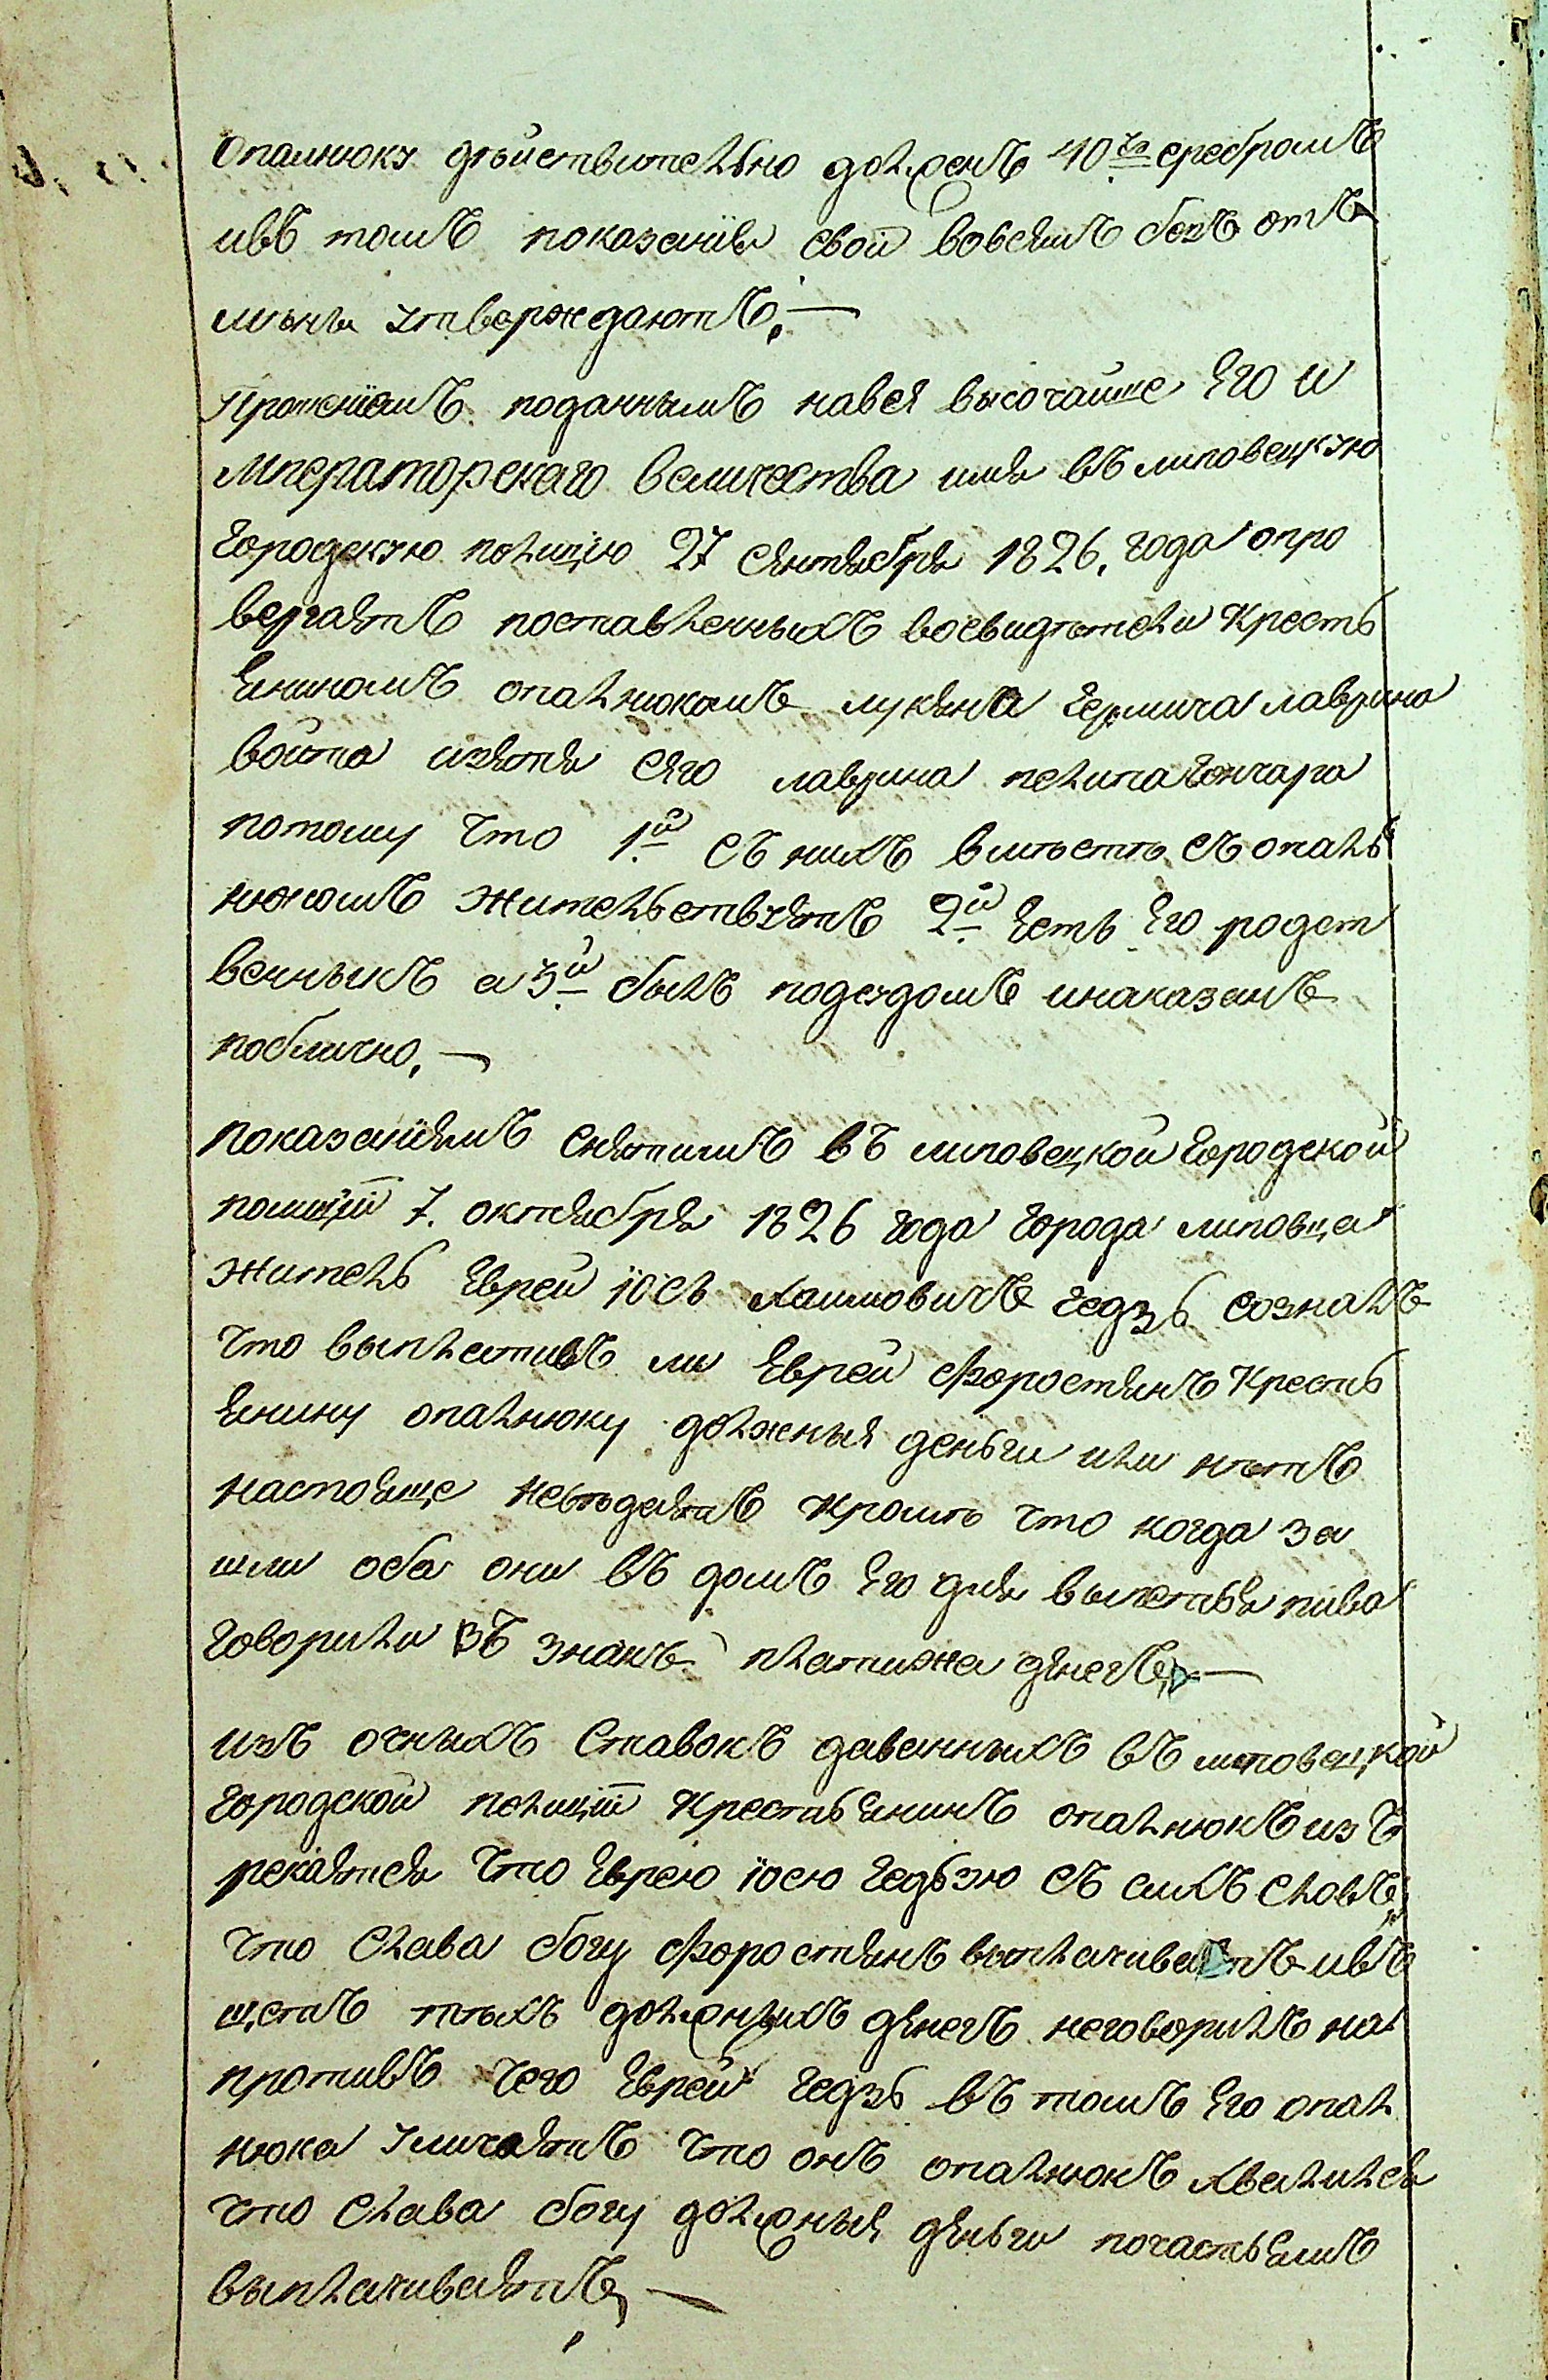 Опалнюку дѣйствительно долженъ 40 ко сребромъ
ивъ томъ показанія свои вовсямъ безъ отъ
мѣны утверждаютъ. —
Прошеніямъ поданнымъ нався высочайше Его И
мператорскаго величества имя въ липовецкую
Городскую полицію 27 сянтября 1826, года опро
вергаятъ поставленныхъ восвидѣтели Кресть
Яниномъ опалнюкомъ лукяна Гермича лаврина
войта изятя сяго лаврина пелипа гончара
потому что 1й съ нихъ вмѣстѣ съ опаль
нюкомъ жительствуятъ 2й Есть Его родст
венныкъ а 3й былъ подсудомъ инаказанъ
поблично. —
показаніямъ снятимъ въ липовецкой Городской
полиціи 7. октября 1826 года города липовца
житель Еврей іось Хаимовичъ гедзь созналъ
что выплативъ ли Еврей Форостянъ Кресть
янину опалнюку должныя деньги или нѣтъ
настояще невѣдаятъ кромѣ что когда за
шли оба они въ домъ Его для выпетья пива
говорили въ знакъ платижа дянегъ, —
изъ очныхъ ставокъ даванныхъ въ липовецкой
городской полиціи Крестьянинъ опалнюкъ изъ
рекаятся что Еврею іосю гедьзю съ сихъ словъ,
что слава богу Форостянъ выплачиваятъ ивъ
щетъ тѣхъ должныхъ дянегъ неговорилъ на
противъ чего Еврей гедзь въ томъ Его опал
нюка уличаятъ что онъ опалнюкъ хвалился
что слава богу должныя дяньги почастьямъ
выплачиваятъ, —